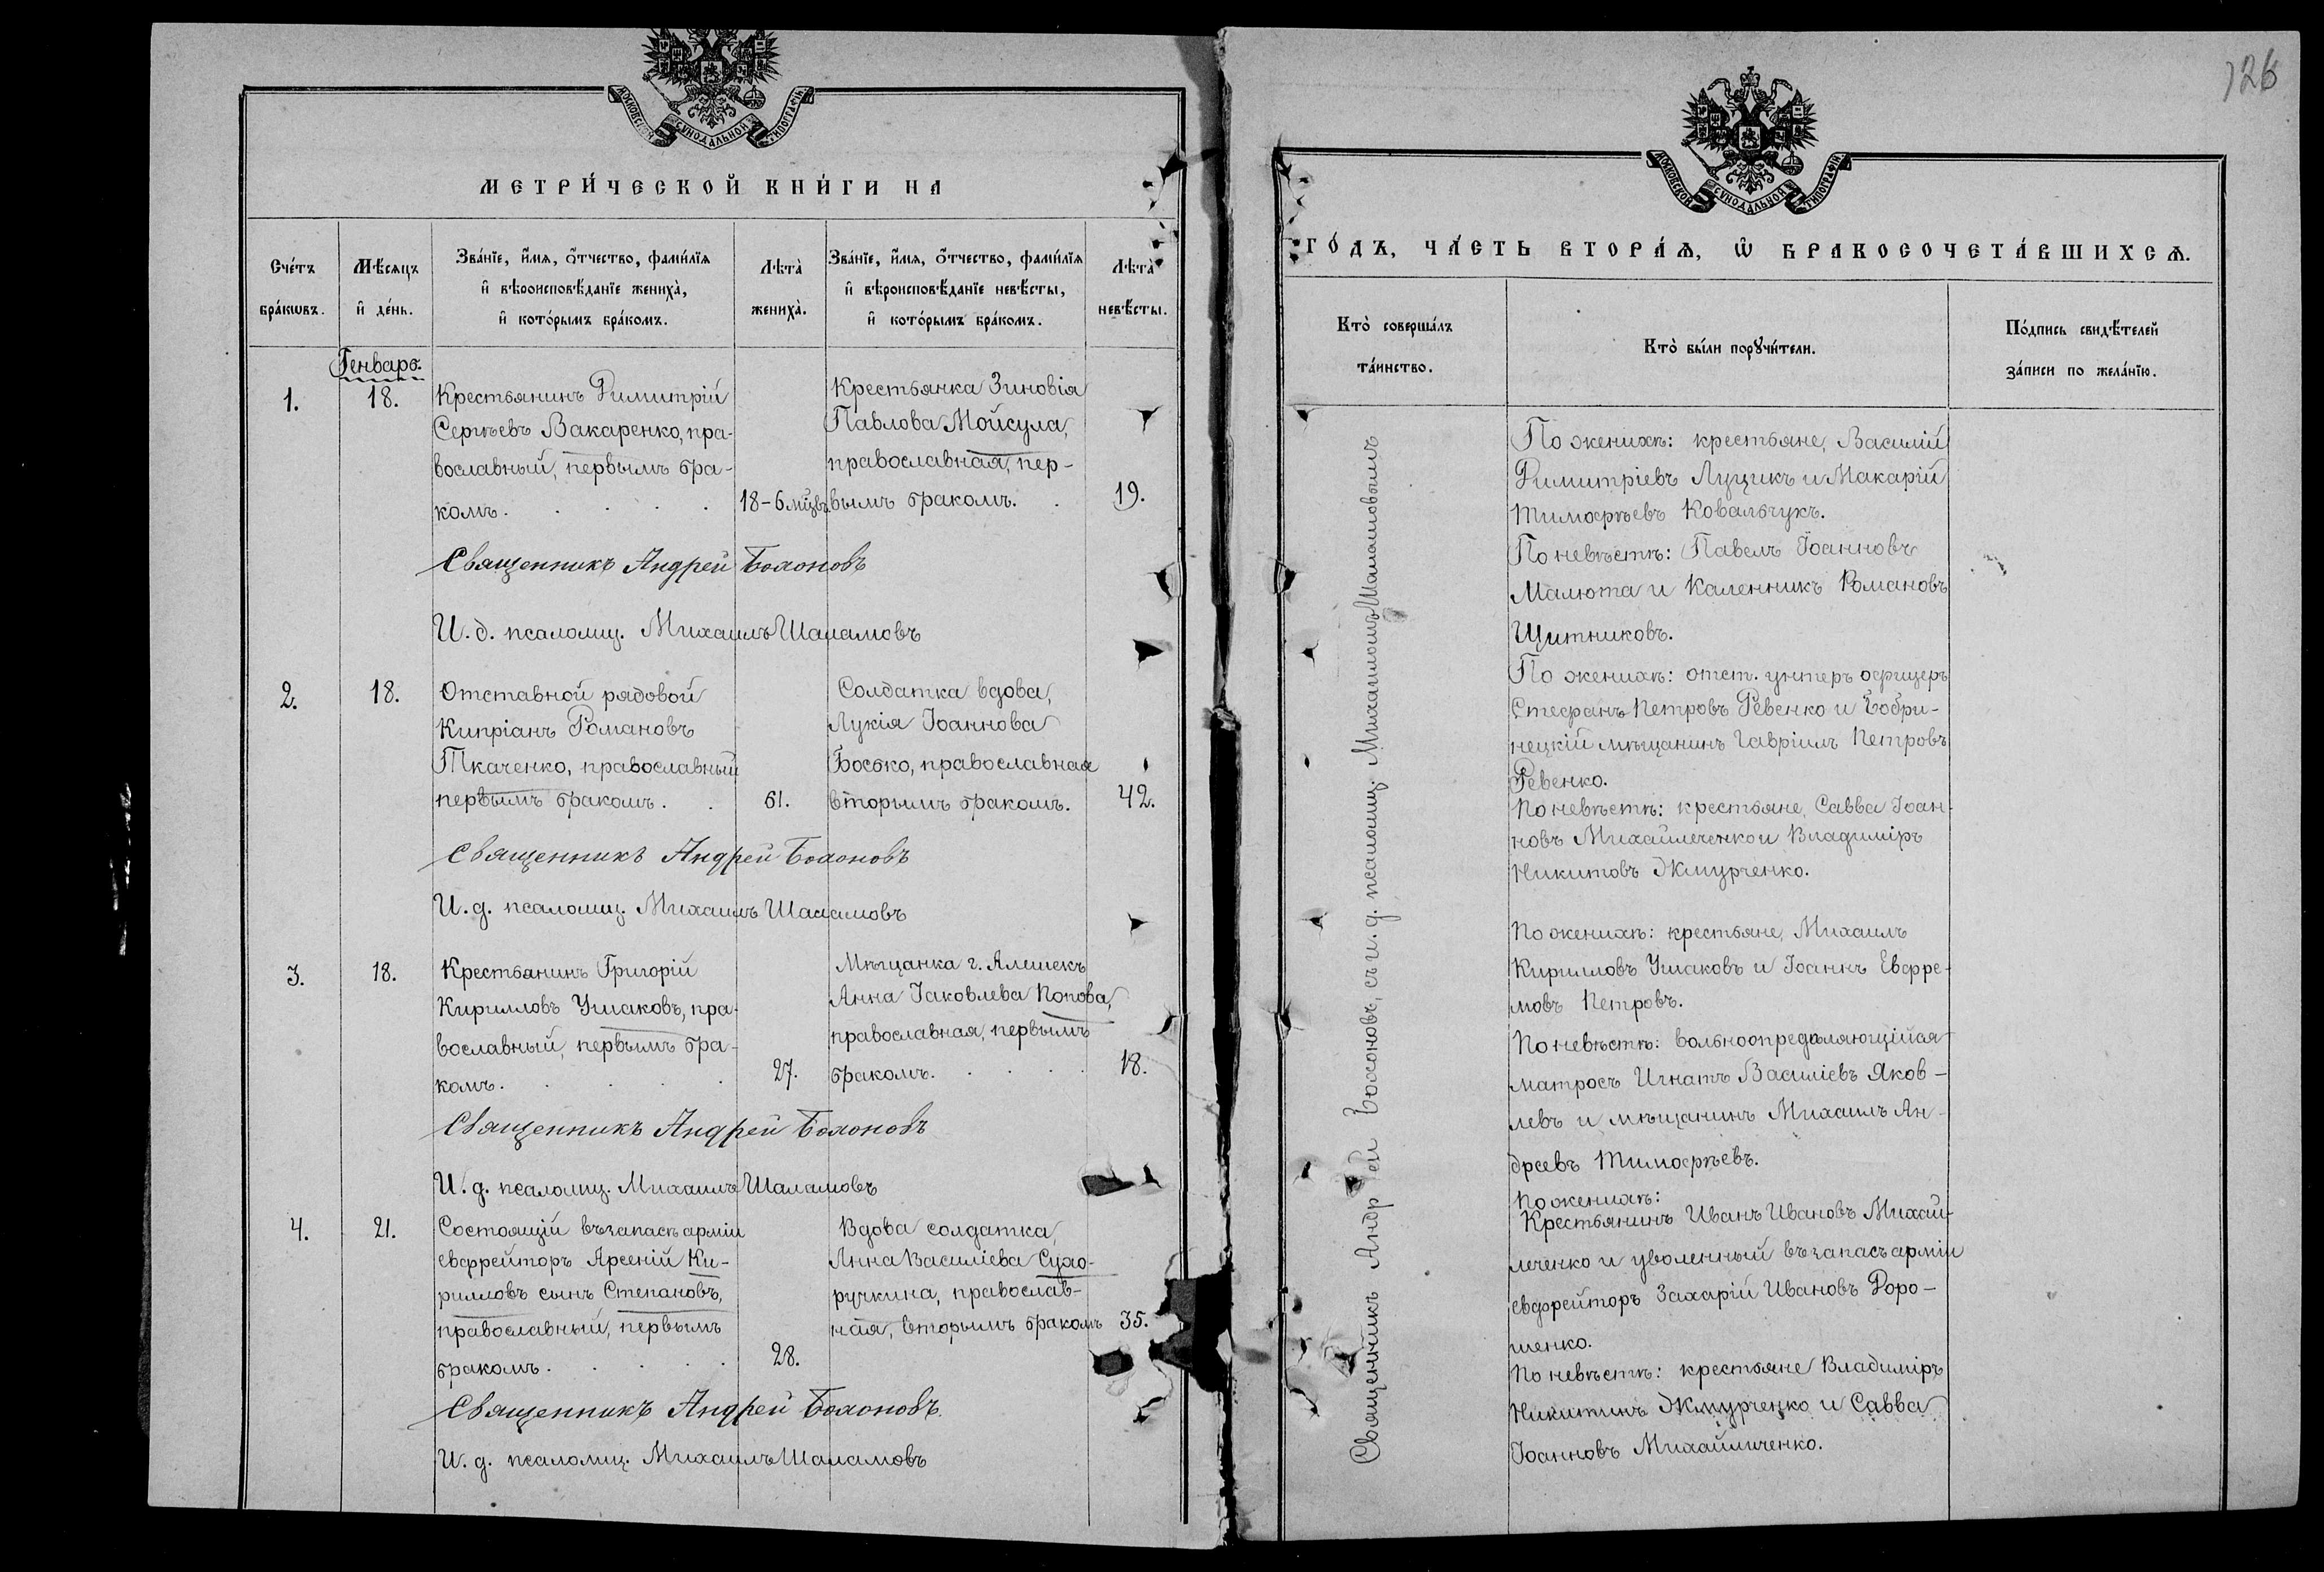 МОСКОВСКОЙ СѴНОДАЛЬНОЙ ТИПОГРАФІИ
МЕТРИ́ЧЕСКОЙ КНИ́ГИ НА
Сче́тъ бра́кѡвъ.
Мѣ́сяцъ и҆ де́нь.
Зва́нїе, и҆́мѧ, ѻ҆́тчество, фами́лїѧ и҆ вѣроисповѣ́данїе жениха̀, и҆ кото́рымъ бра́комъ.
Лѣта̀ жениха̀.
Зва́нїе, и҆́мѧ, ѻ҆́тчество, фами́лїѧ и҆ вѣроисповѣ́данїе невѣ́сты, и҆ кото́рымъ бра́комъ.
Лѣта̀ невѣ́сты.
Генварь.
1.
18.
Крестьянинъ Димитрій
Сергѣевъ Вакаренко, пра-
вославный, первымъ бра-
комъ.
18-6 мцвъ
Крестьянка Зиновія
Павлова Мойсула,
православная, пер-
вымъ бракомъ.
19.
Священникъ Андрей Бохоновъ
И. д. псаломщ. Михаилъ Шаламовъ
2.
18.
Отставной рядовой
Кипріанъ Романовъ
Ткаченко, православный
первымъ бракомъ.
61.
Солдатка вдова,
Лукія Іоаннова
Босько, православная
вторымъ бракомъ.
42.
Священникъ Андрей Бохоновъ
И. д. псаломщ. Михаилъ Шаламовъ
3.
18.
Крестьянинъ Григорій
Кирилловъ Ушаковъ, пра-
вославный, первымъ бра-
комъ.
27.
Мѣщанка г. Алешекъ
Анна Іаковлева Попова,
православная, первымъ
бракомъ.
18.
Священникъ Андрей Бохоновъ
И. д. псаломщ. Михаилъ Шаламовъ
4.
21.
Состоящій въ запасѣ арміи
ефрейторъ Арсеній Ки-
рилловъ сынъ Степановъ,
православный, первымъ
бракомъ.
28.
Вдова солдатка,
Анна Василіева Сухо-
ручкина, православ-
ная, вторымъ бракомъ
35.
Священникъ Андрей Бохоновъ.
И. д. псаломщ. Михаилъ Шаламовъ
126
МОСКОВСКОЙ СѴНОДАЛЬНОЙ ТИПОГРАФІИ
ГО́ДЪ, ЧА́СТЬ ВТОРА́Ѧ, Ѽ БРАКОСОЧЕТА́ВШИХСѦ.
Кто̀ соверша́лъ та́инство.
Кто̀ бы́ли порꙋчи́тели.
По́дпись свидѣ́телей за́писи по жела́нїю.
Священникъ Андрей Бохоновъ, съ и. д. псаломщ. Михаиломъ Шаламовымъ
По женихѣ: крестьяне, Василій
Димитріевъ Луцикъ и Макарій
Тимофѣевъ Ковальчукъ.
По невѣстѣ: Павелъ Іоанновъ
Малюта и Каленникъ Романовъ
Щитниковъ.
По женихѣ: отст. унтеръ офицеръ
Стефанъ Петровъ Ревенко и Бобри-
нецкій мѣщанинъ Гавріилъ Петровъ
Ревенко.
По невѣстѣ: крестьяне, Савва Іоан-
новъ Михайлеченко и Владиміръ
Никитовъ Жмурченко.
По женихѣ: крестьяне, Михаилъ
Кирилловъ Ушаковъ и Іоаннъ Ефре-
мовъ Петровъ.
По невѣстѣ: вольноопредѣляющійся
матросъ Игнатъ Василіевъ Яков-
левъ и мѣщанинъ Михаилъ Ан-
дреевъ Тимофѣевъ.
По женихѣ:
Крестьянинъ Иванъ Ивановъ Михай-
леченко и уволенный въ запасъ арміи
ефрейторъ Захарій Ивановъ Доро-
шенко.
По невѣстѣ: крестьяне Владиміръ
Никитинъ Жмурченко и Савва
Іоанновъ Михайличенко.